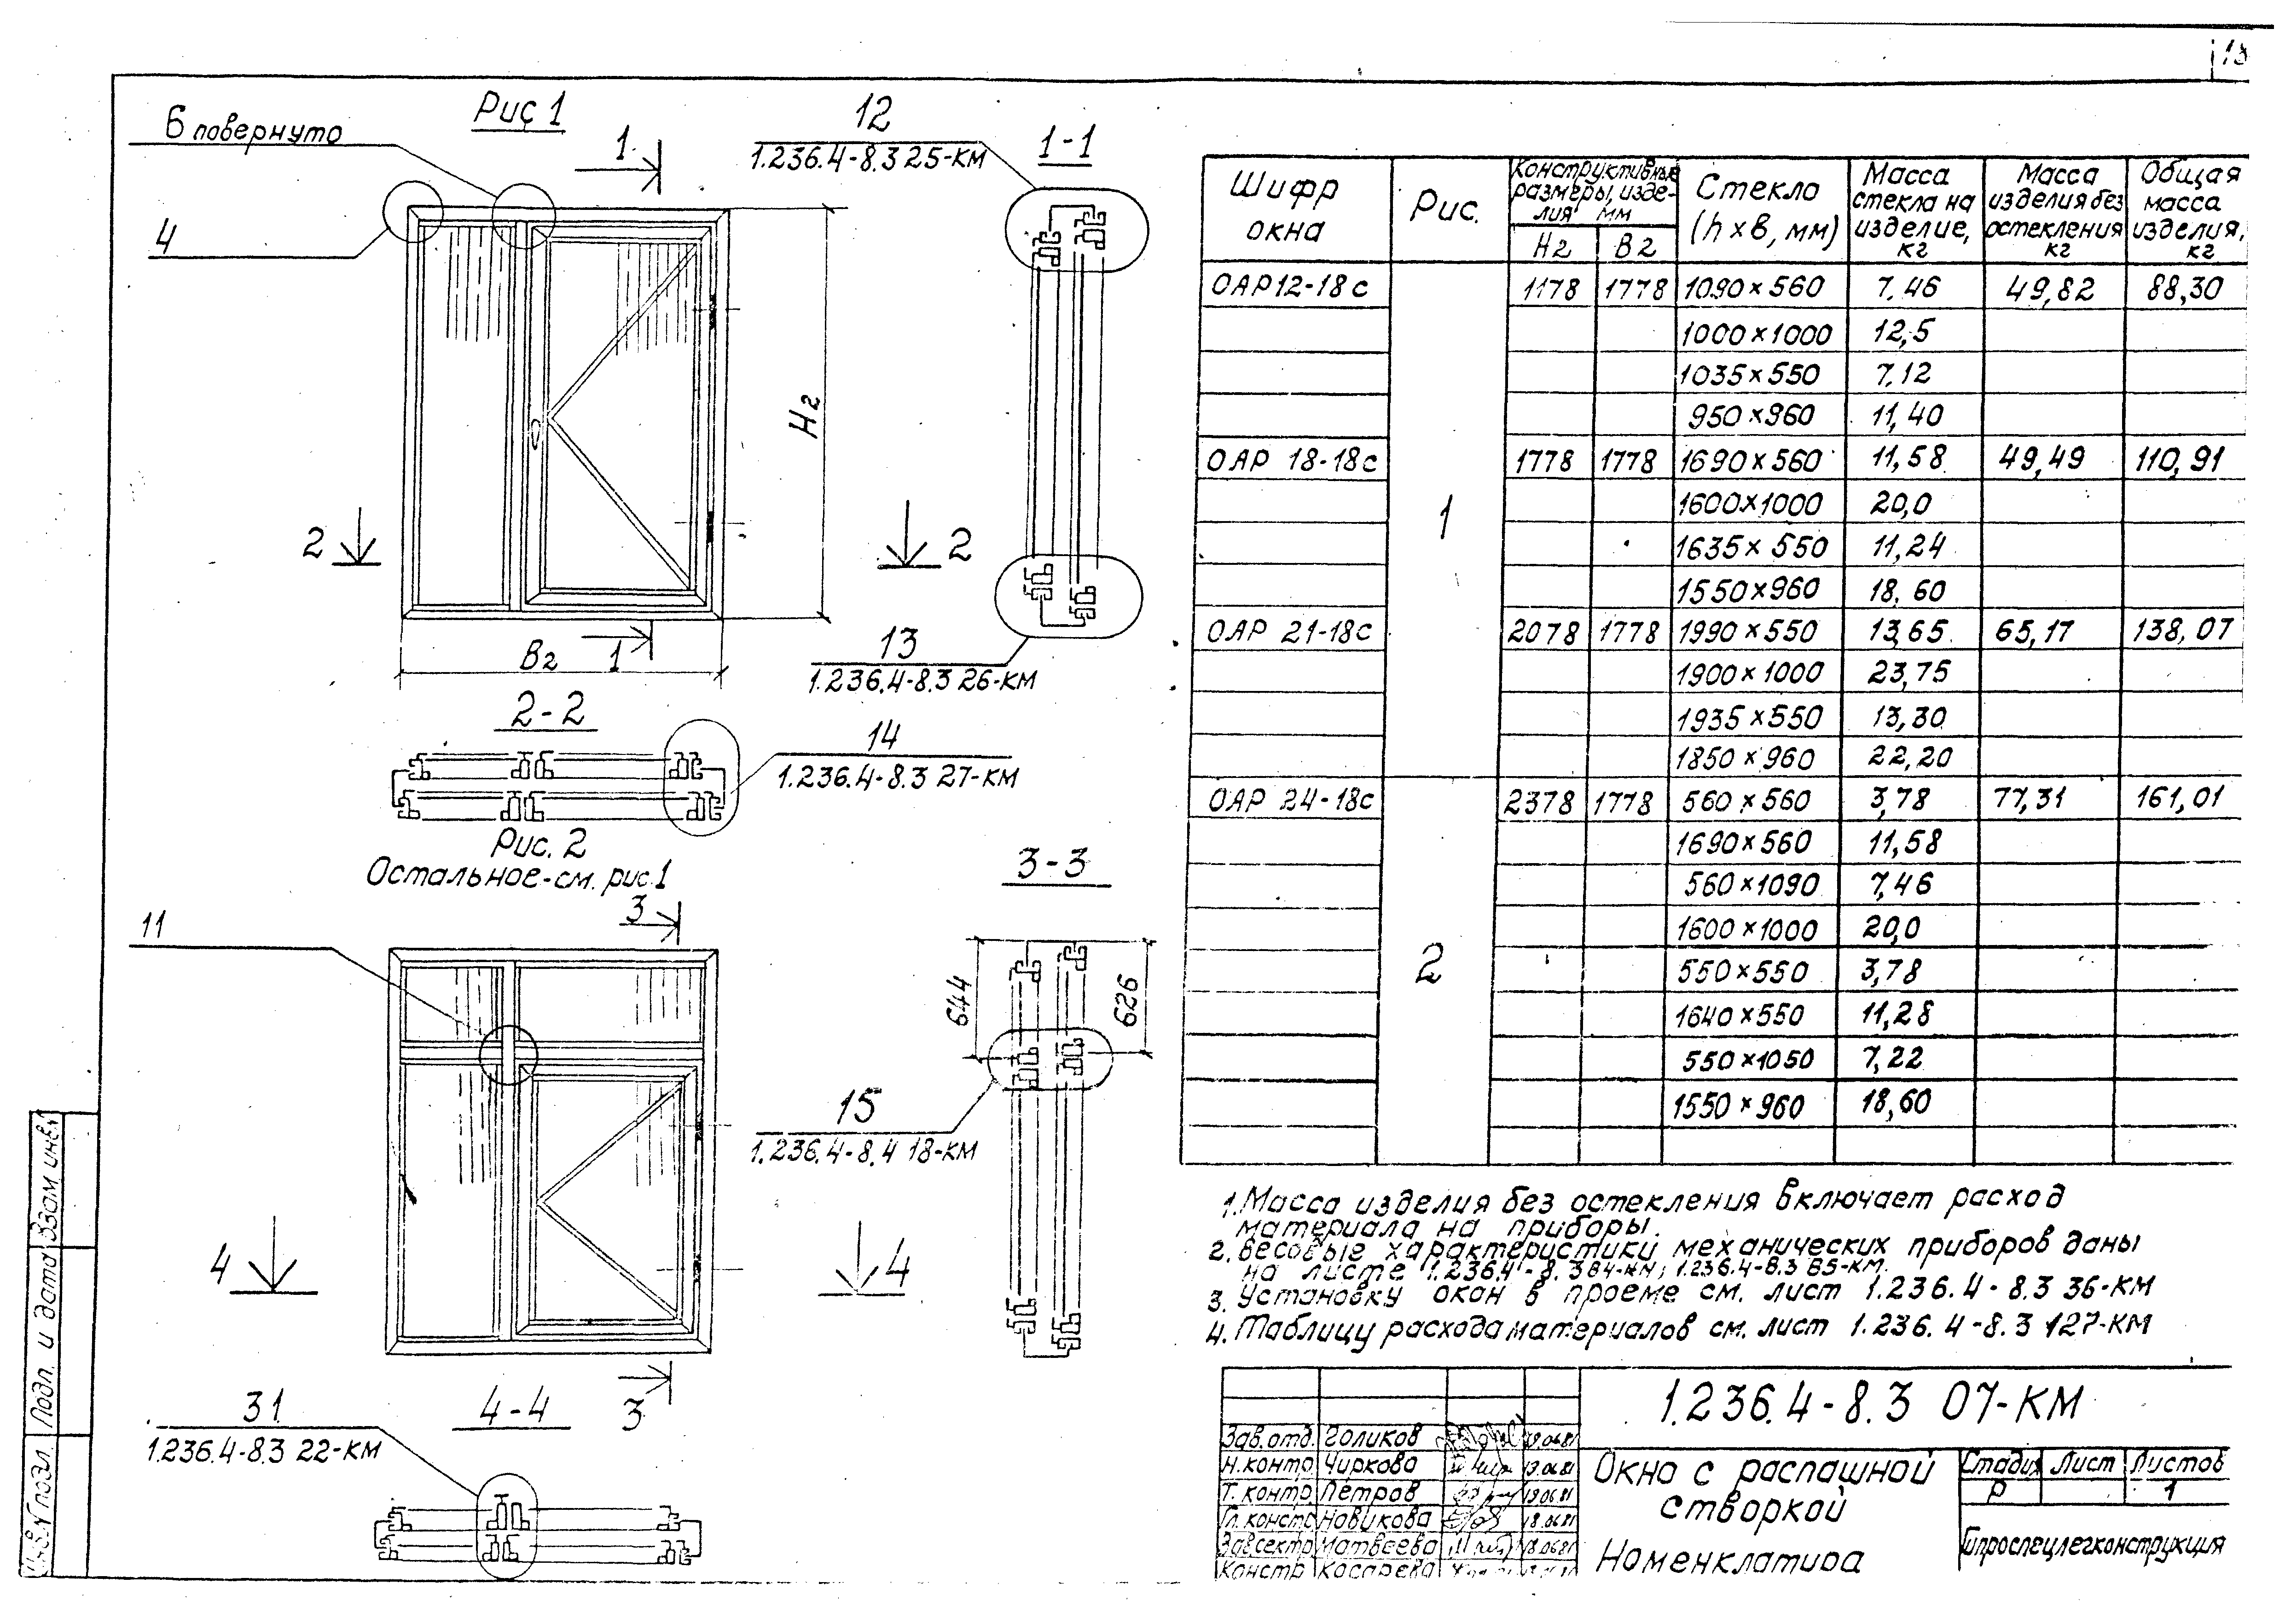 Рис 1
6 повернуто
4
1
12
1.236.4-8.3 25-КМ
1-1
H2
2
2
1
B2
13
1.236.4-8.3 26-КМ
2-2
14
1.236.4-8.3 27-КМ
Рис. 2
Остальное-см. рис.1
3
3-3
11
644
626
15
1.236.4-8.4 18-КМ
4
4
3
31
1.236.4-8.3 22-КМ
4-4
Шифр окна
Рис.
Конструктивные размеры, изделия мм
H2 B2
Стекло (h×в, мм)
Масса стекла на изделие, кг
Масса изделия без остекления кг
Общая масса изделия, кг
ОАР12-18с 1178 1778 1090×560 7,46 49,82 88,30
1000×1000 12,5
1035×550 7,12
950×960 11,40
ОАР 18-18с 1778 1778 1690×560 11,58 49,49 110,91
1600×1000 20,0
1
1635×550 11,24
1550×960 18,60
ОАР 21-18с 2078 1778 1990×550 13,65 65,17 138,07
1900×1000 23,75
1935×550 13,30
1850×960 22,20
ОАР 24-18с 2378 1778 560×560 3,78 77,31 161,01
1690×560 11,58
560×1090 7,46
1600×1000 20,0
2
550×550 3,78
1640×550 11,28
550×1050 7,22
1550×960 18,60
1. Масса изделия без остекления включает расход
материала на приборы.
2. Весовые характеристики механических приборов даны
на листе 1.236.4-8.3 84-КМ; 1.236.4-8.3 85-КМ.
3. Установку окон в проеме см. лист 1.236.4-8.3 36-КМ
4. Таблицу расхода материалов см. лист 1.236.4-8.3 127-КМ
1.236.4-8.3 07-КМ
Зав.отд. Голиков 19.06.81
Н.контр Чиркова 19.06.81
Т. контр. Петров 19.06.81
Гл. констр Новикова 18.06.81
Зав.сектр Матвеева 18.06.81
Констр Косарева
Окно с распашной
створкой
Номенклатура
Стадия Лист Листов
Р 1
Гипроспецлегконструкция
Взам инв.
Подп. и дата
Инв.N подл.